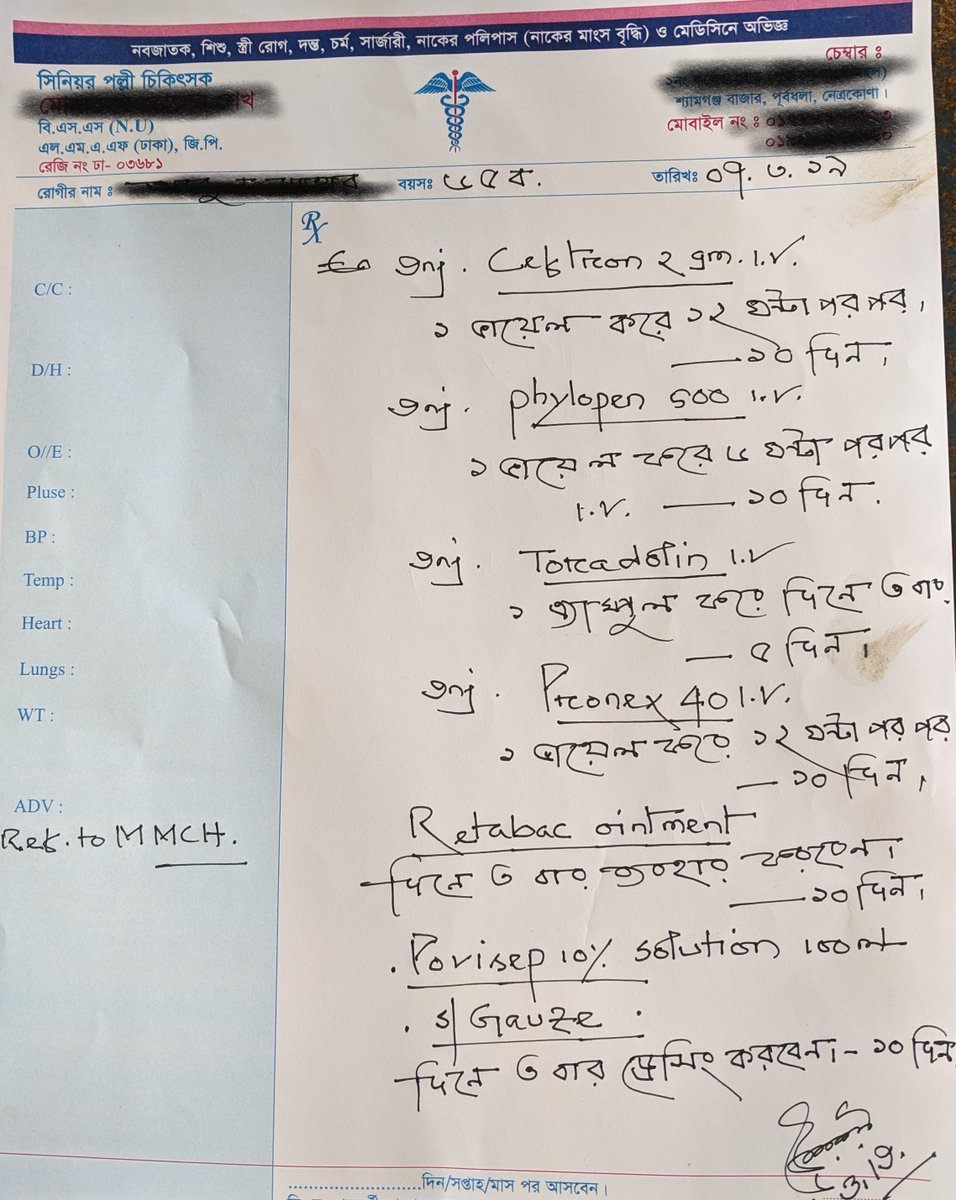 নবজাতক, শিশু, স্ত্রী রোগ, দন্ত, চর্ম, সার্জারী, নাকের পলিপাস (নাকের মাংস বৃদ্ধি) ও মেডিসিনে অভিজ্ঞ
সিনিয়র পল্লী চিকিৎসক
বি.এস.এস (N.U)
এল.এম.এ.এফ (ঢাকা), জি.পি.
রেজি নং ঢা- ০৩৬৮১
চেম্বার :
শ্যামগঞ্জ বাজার, পূর্বধলা, নেত্রকোণা।
মোবাইল নং :
রোগীর নাম :
বয়সঃ ৬৫ ব.
তারিখঃ ০৭. ৩. ১৯
Rx
C/C :
D/H :
O//E :
Pluse :
BP :
Temp :
Heart :
Lungs :
WT :
ADV :
Ref. to MMCH.
Inj. Ceftron ২ gm. I.V.
১ ভায়েল করে ১২ ঘন্টা পর পর।
— ১০ দিন।
Inj. Phylopen 500 I.V.
১ ভায়েল করে ৬ ঘন্টা পর পর
I.V. — ১০ দিন.
Inj. Torcadolin I.V
১ এ্যাম্পুল করে দিনে ৩ বার
— ৫ দিন।
Inj. Pronex 40 I.V.
১ ভায়েল করে ১২ ঘন্টা পর পর
— ১০ দিন।
Retabac ointment
দিনে ৩ বার ব্যবহার করবেন।
— ১০ দিন।
. Povisep 10% solution 100ml
. s/ Gauze .
দিনে ৩ বার ড্রেসিং করবেন। - ১০ দিন
........................দিন/সপ্তাহ/মাস পর আসবেন।